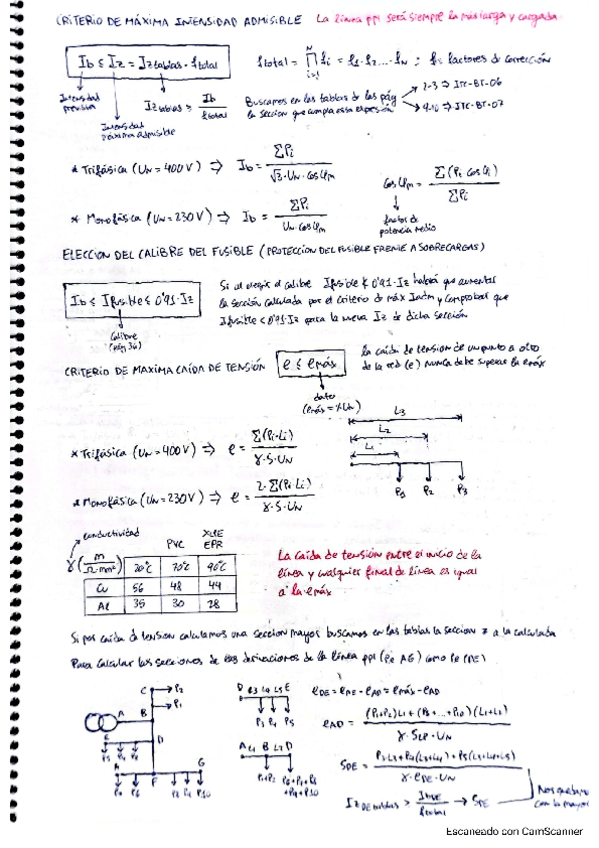 CRITERIO DE MÁXIMA INTENSIDAD ADMISIBLE La línea ppl será siempre la más larga y cargada
Ib ≤ Iz = Iz tablas · f total
f total = N ∏ i=1 fi = f1 · f2 ... · fN ; fi factores de corrección
Intensidad prevista
Intensidad máxima admisible
Iz tablas ≥ Ib / f total
Buscamos en las tablas de las pág 2-3 ⇒ ITC-BT-06
la sección que cumpla esa expresión 4-10 ⇒ ITC-BT-07
* Trifásica (UN = 400V) ⇒ Ib = ΣPi / √3 · UN · cosφm
cosφm = Σ(Pi · cosφi) / ΣPi
factor de potencia medio
* Monofásica (UN = 230V) ⇒ Ib = ΣPi / UN · cosφm
ELECCION DEL CALIBRE DEL FUSIBLE (PROTECCION DEL FUSIBLE FRENTE A SOBRECARGAS)
Ib ≤ Ifusible ≤ 0'91 · Iz
Calibre
Si al elegir el calibre Ifusible ≮ 0'91 · Iz habrá que aumentar
la sección calculada por el criterio de máx Iadm y comprobar que
Ifusible < 0'91 · Iz para la nueva Iz de dicha sección
CRITERIO DE MAXIMA CAÍDA DE TENSIÓN
e ≤ emáx
la caída de tension de un punto a otro
de la red (e) nunca debe superar la emáx
dato
(emáx = % UN)
L3
L2
L1
P1 P2 P3
* Trifásica (UN = 400V) ⇒ e = Σ(Pi · Li) / γ · S · UN
* Monofásica (UN = 230V) ⇒ e = 2 · Σ(Pi · Li) / γ · S · UN
conductividad
γ (m / Ω·mm²)
PVC XLPE EPR
20°C 70°C 90°C
Cu 56 48 44
Al 35 30 28
La caída de tensión entre el inicio de la
línea y cualquier final de línea es igual
a la emáx
Si por caída d tension calculamos una seccion mayor buscamos en las tablas la seccion ≥ a la calculada
Para calcular las secciones de las derivaciones de la línea ppl (Pe AG) como Pe (DE)
C P2
P1
A B
E D
A F G
D L3 L4 L5 E
P3 P4 P5
A L1 B L2 D
P1+P2
eDE = eAE - eAD = emáx - eAD
eAD = (P1+P2)L1 + (P3+...+P10)(L1+L2) / γ · SLP · UN
SDE = P3L3 + P4(L3+L4) + P5(L3+L4+L5) / γ · eDE · UN
Iz DE tablas > IbDE / f total → SDE
Nos quedamos
con la mayor
Escaneado con CamScanner